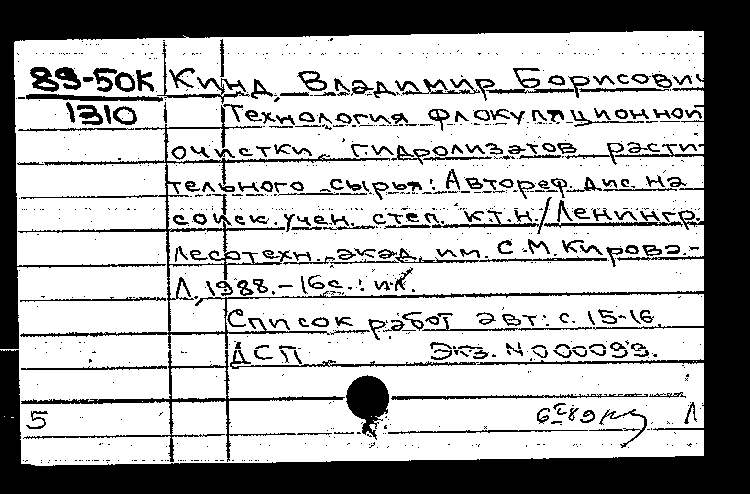 89-50К Кинд, Владимир Борисович
1310 Технология флокуляционной
очистки гидролизатов расти-
тельного сырья: Автореф. дис. на
соиск. учен. степ. к.т.н./Ленингр.
лесотехн. акад. им. С.М.Кирова.-
Л, 1988.-16с.: ил.
Список работ авт: с. 15-16.
ДСП Экз. N.000099.
5 Л